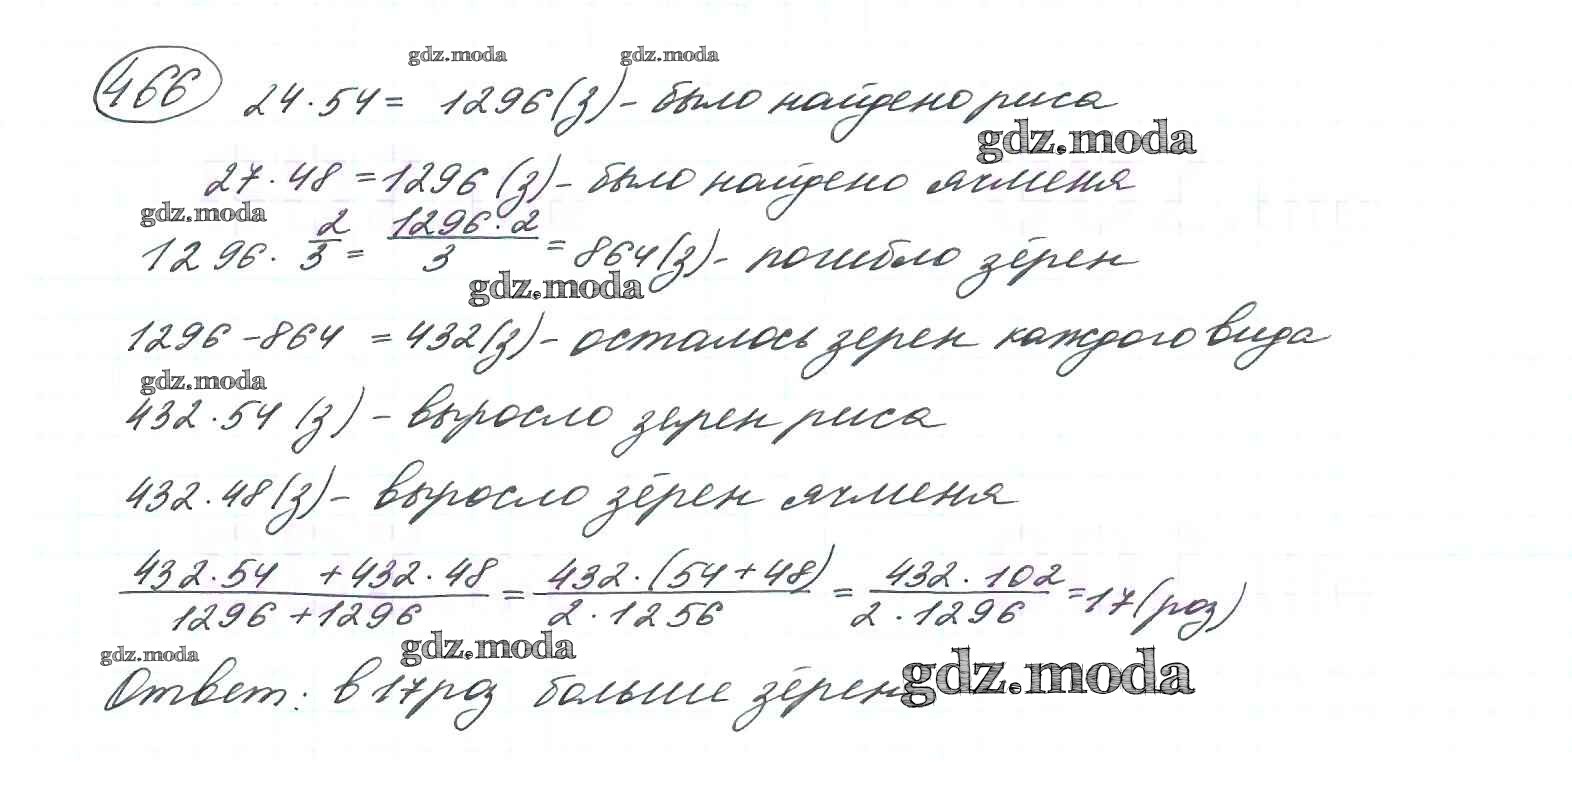 gdz.moda gdz.moda
466 24·54= 1296(з) - было найдено риса
gdz.moda
27·48 =1296(з) - было найдено ячменя
gdz.moda
1296· 2/3 = 1296·2/3 = 864(з) - погибло зёрен
gdz.moda
1296 -864 = 432(з) - осталось зерен каждого вида
gdz.moda
432·54 (з) - выросло зерен риса
432·48(з) - выросло зёрен ячменя
432·54 +432·48 / 1296+1296 = 432·(54+48) / 2·1256 = 432·102 / 2·1296 =17(роз)
gdz.moda gdz.moda
Ответ: в 17роз больше зёрен gdz.moda